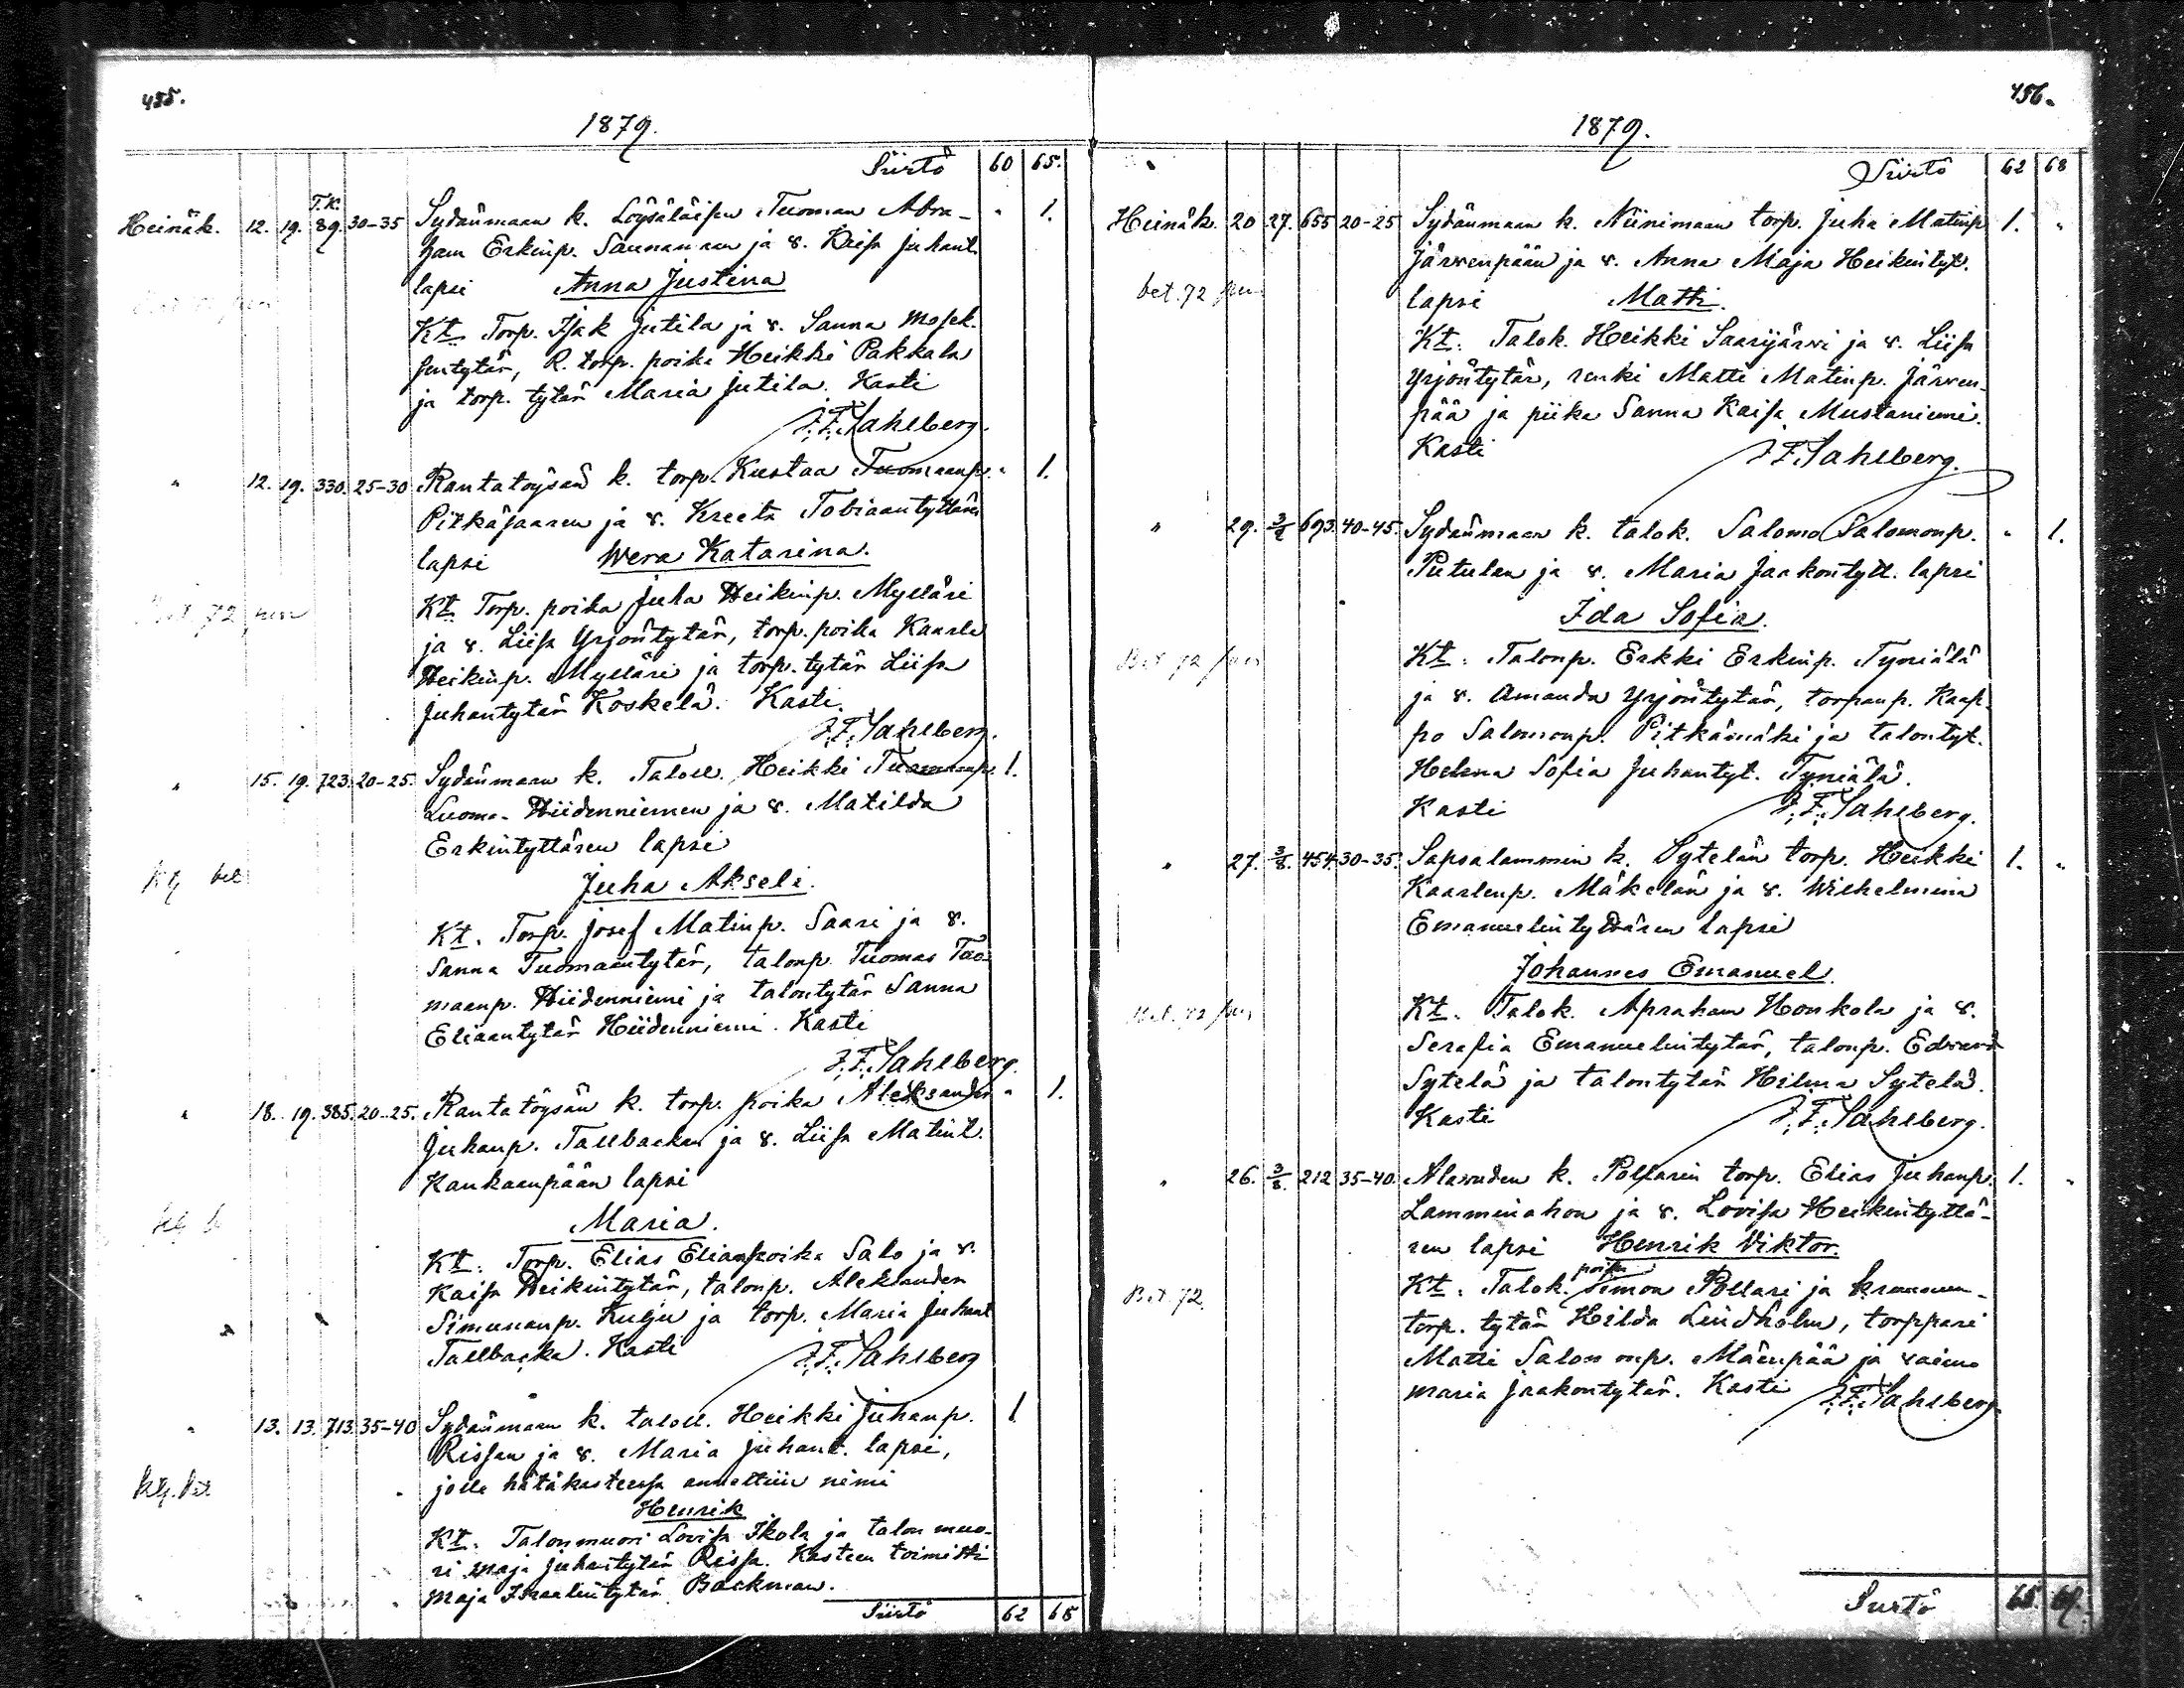 455.
1879.
Siirtö 60 65.
T.K.
Heinäk. 12. 19. 89. 30-35 Sydänmaan k. Löysäläisen Tuoman Abra- " 1.
ham Erkinp. Saunamaan ja v. Kaisa Juhant.
lapsi Anna Justina
Kt. Torp. Isak Jutila ja v. Sanna Mosek.
sentytär, R. torp. poika Heikki Pakkala
ja torp. tytär Maria Jutila. Kasti
J.F. Sahlberg.
" 12. 19. 330. 25-30 Rantatöysän k. torp. Kustaa Tuomaanp. " 1.
Pitkäsaaren ja v. Kreeta Tobiaantyttären
lapsi Wera Katarina.
Bet 72 pen
Kt. Torp. poika Juha Heikinp. Mylläri
ja v. Liisa Yrjöntytär, torp. poika Kaarle
Heikinp. Mylläri ja torp. tytär Liisa
Juhantytär Koskela. Kasti.
J.F. Sahlberg.
" 15. 19. 723. 20-25. Sydänmaan k. Taloll. Heikki Tuomaanp. 1.
Luoma-Hiidenniemen ja v. Matilda
Erkintyttären lapsi
Juha Akseli.
Kt. Torp. Josef Matinp. Saari ja v.
Sanna Tuomaantytär, talonp. Tuomas Tuo-
maanp. Hiidenniemi ja talontytär Sanna
Eliaantytär Hiidenniemi. Kasti
J.F. Sahlberg.
" 18. 19. 385. 20-25. Rantatöysän k. torp. poika Aleksander " 1.
Juhanp. Tallbackan ja v. Liisa Matint.
Kankaanpään lapsi
Maria.
Kt. Torp. Elias Elianpoika Salo ja v.
Kaisa Heikintytär, talonp. Aleksander
Simunanp. Kulju ja torp. Maria Juhant
Tallbacka. Kasti
J.F. Sahlberg
" 13. 13. 713. 35-40 Sydänmaan k. taloll. Heikki Juhanp. 1
Rissan ja v. Maria Juhant. lapsi,
jolle hätäkasteessa annettiin nimi
Henrik
Kt. Talonmuori Lovisa Ikola ja talon muo-
ri Maja Juhantytär Rissa. Kasteen toimitti
Maja Israelintytär Backman.
Siirtö 62 68
456.
1879.
Siirtö 62 68
Heinäk. 20 27. 655 20-25 Sydänmaan k. Niinimaan torp. Juha Matinp. 1. "
Järvenpään ja v. Anna Maja Heikintyt.
bet. 72 pen
lapsi Matti.
Kt. Talok. Heikki Saarijärvi ja v. Liisa
Yrjöntytär, renki Matti Matinp. Järven-
pää ja piika Sanna Kaisa Mustaniemi.
Kasti J.F. Sahlberg.
" 29. 3/8 693. 40-45. Sydänmaan k. talok. Salomo Salomonp. " 1.
Putulan ja v. Maria Jaakontytt. lapsi
Ida Sofia.
Bet 72 pen
Kt. Talonp. Erkki Erkinp. Tyniälä
ja v. Amanda Yrjöntytär, torpanp. Kaap-
po Salomonp. Pitkämäki ja talontyt.
Helena Sofia Juhantyt. Tyniälä.
Kasti J.F. Sahlberg.
" 27. 3/8. 454. 30-35. Sapsalammin k. Sytelän torp. Heikki 1. "
Kaarlenp. Mäkelän ja v. Wilhelmina
Emanuelintyttären lapsi
Johannes Emanuel.
Bet. 72 pen
Kt. Talok. Apraham Honkola ja v.
Serafia Emanuelintytär, talonp. Edvard
Sytelä ja talontytär Hilma Sytelä.
Kasti J.F. Sahlberg.
" 26. 3/8. 212 35-40. Alavuden k. Pollarin torp. Elias Juhanp. 1. "
Lamminahon ja v. Lovisa Heikintyttä-
ren lapsi Henrik Viktor.
Bet. 72
poika
Kt. Talok. Simon Pollari ja kruunun-
torp. tytär Hilda Lindholm, torppari
Matti Salomonp. Mäenpää ja vaimo
Maria Jaakontytär. Kasti J.F. Sahlberg.
Siirtö 65. 69.